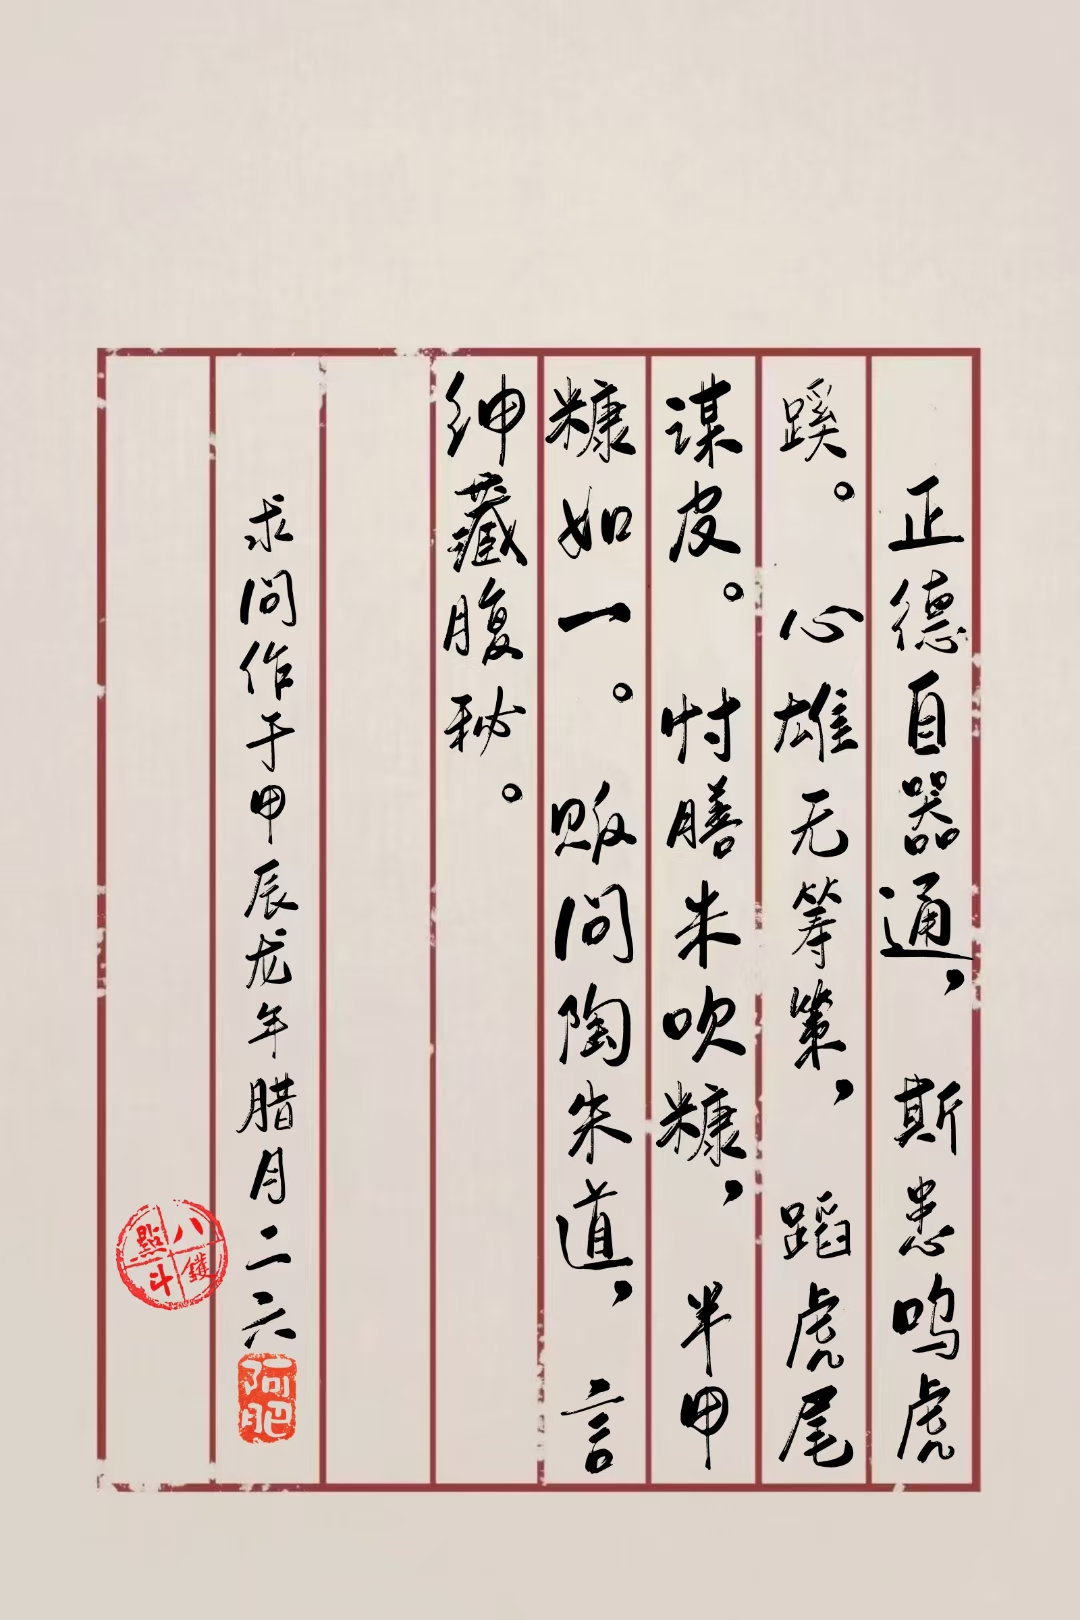 正德自器通，斯悉鸣虎
蹊。心雄无筹策，蹈虎尾
谋皮。忖膳米吹糠，半甲
糠如一。贩问陶朱道，言
绅藏腹秘。
求问作于甲辰龙年腊月二六
阿肥
八鐽
點斗